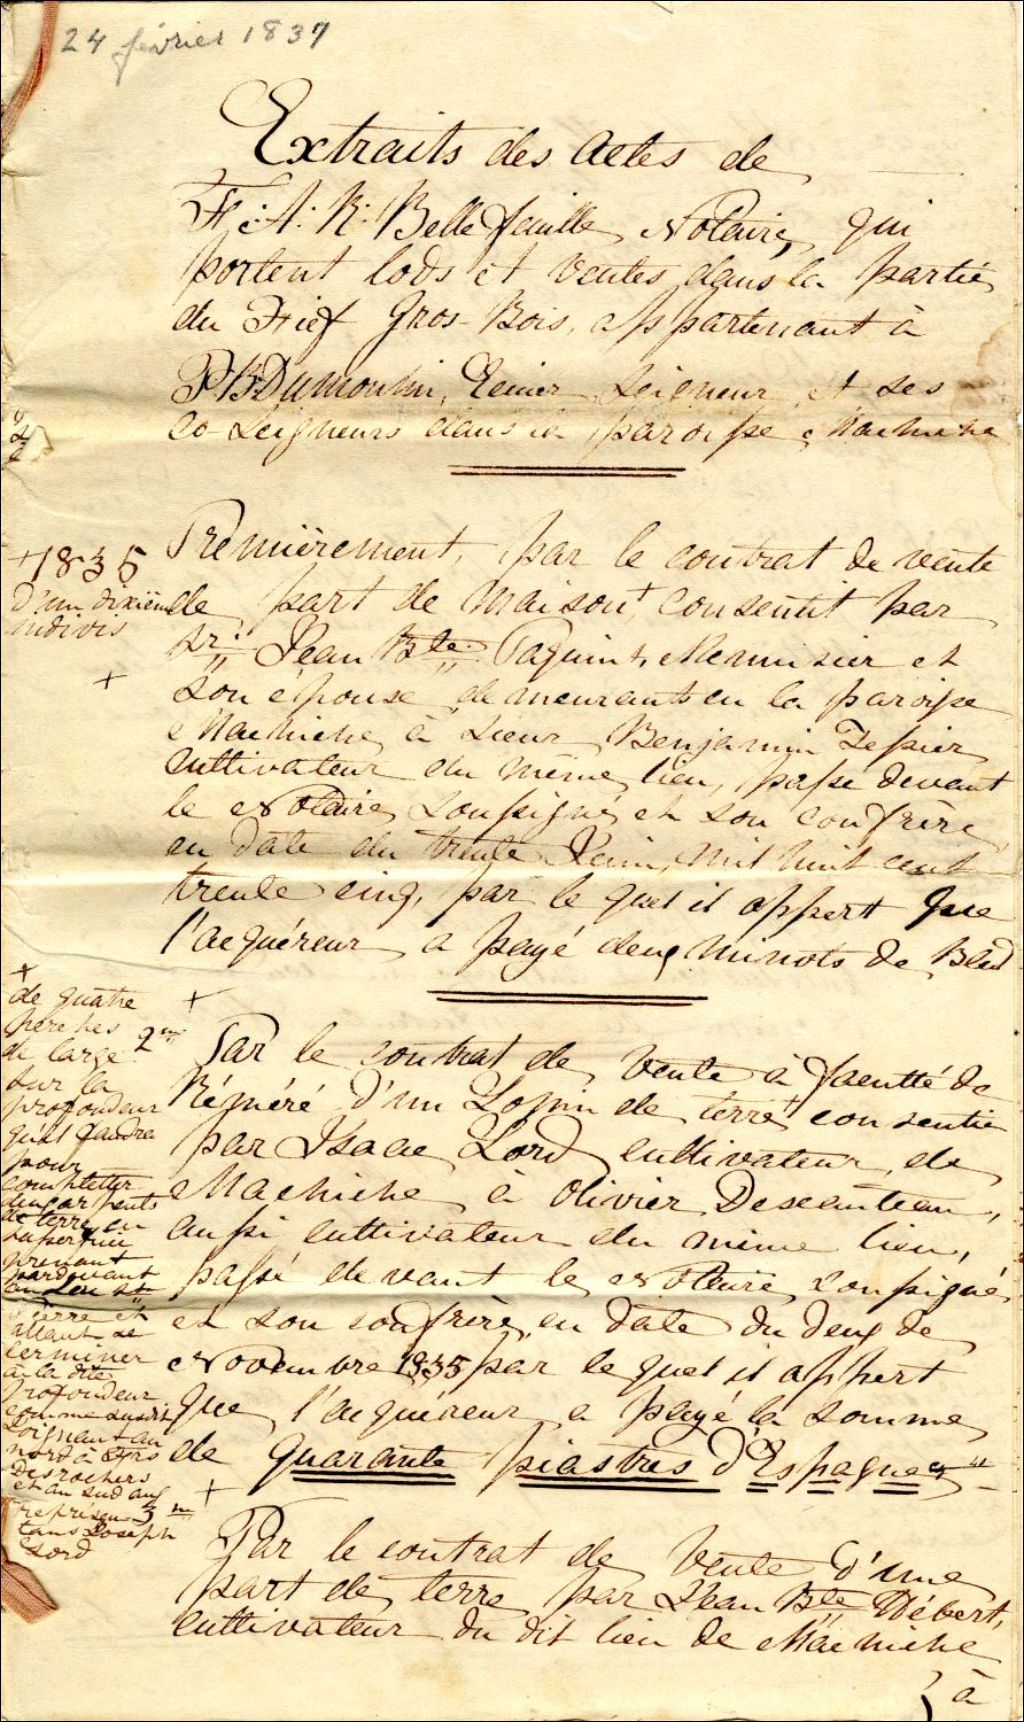 24 février 1837
Extraits des Actes de
F: A: R: Bellefeuille, Notaire, qui
portent lods et ventes dans la partie
du Fief Gros-Bois, appartenant à
P. B. Dumoulin, Ecuier Seigneur et ses
Co-Seigneurs dans la paroisse Machiche
Premièrement, par le contrat de vente
+1835
d'un dixième
indivis
+
de part de maison+ consentit par
Sr. Jean Bte. Paquin, Menuisier et
son épouse demeurants en la paroisse
Machiche à Sieur Benjamin Tessier
cultivateur du même lieu, passé devant
le Notaire soussigné et son confrère
en date du trente Juin, mil huit cent
trente cinq, par le quel il appert que
l'acquéreur a payé deux minots de Bled
+
de quatre
perches
de large
sur la
profondeur
qu'il faudra
pour
completter
deux arpents
de terre en
superficie
prenant
pardevant
au
Pierre et
allant se
terminer
à la dite
profondeur
comme susdit
joignant au
nord à
Desrochers
et au sud aux
représen-
tans Joseph
Lord
+
2me Par le contrat de vente à faculté de
Réméré d'un Lopin de terre+ consentie
par Isaac Lord cultivateur de
Machiche à Olivier Descauteau,
aussi cultivateur du même lieu,
passé devant le Notaire soussigné
et son confrère, en date du deux de
Novembre 1835 par le quel il appert
que l'acquéreur a payé la somme
de quarante piastres d'Espagne
+
3me Par le contrat de vente d'une
part de terre par Jean Bte Hébert,
cultivateur du dit lieu de Machiche
à